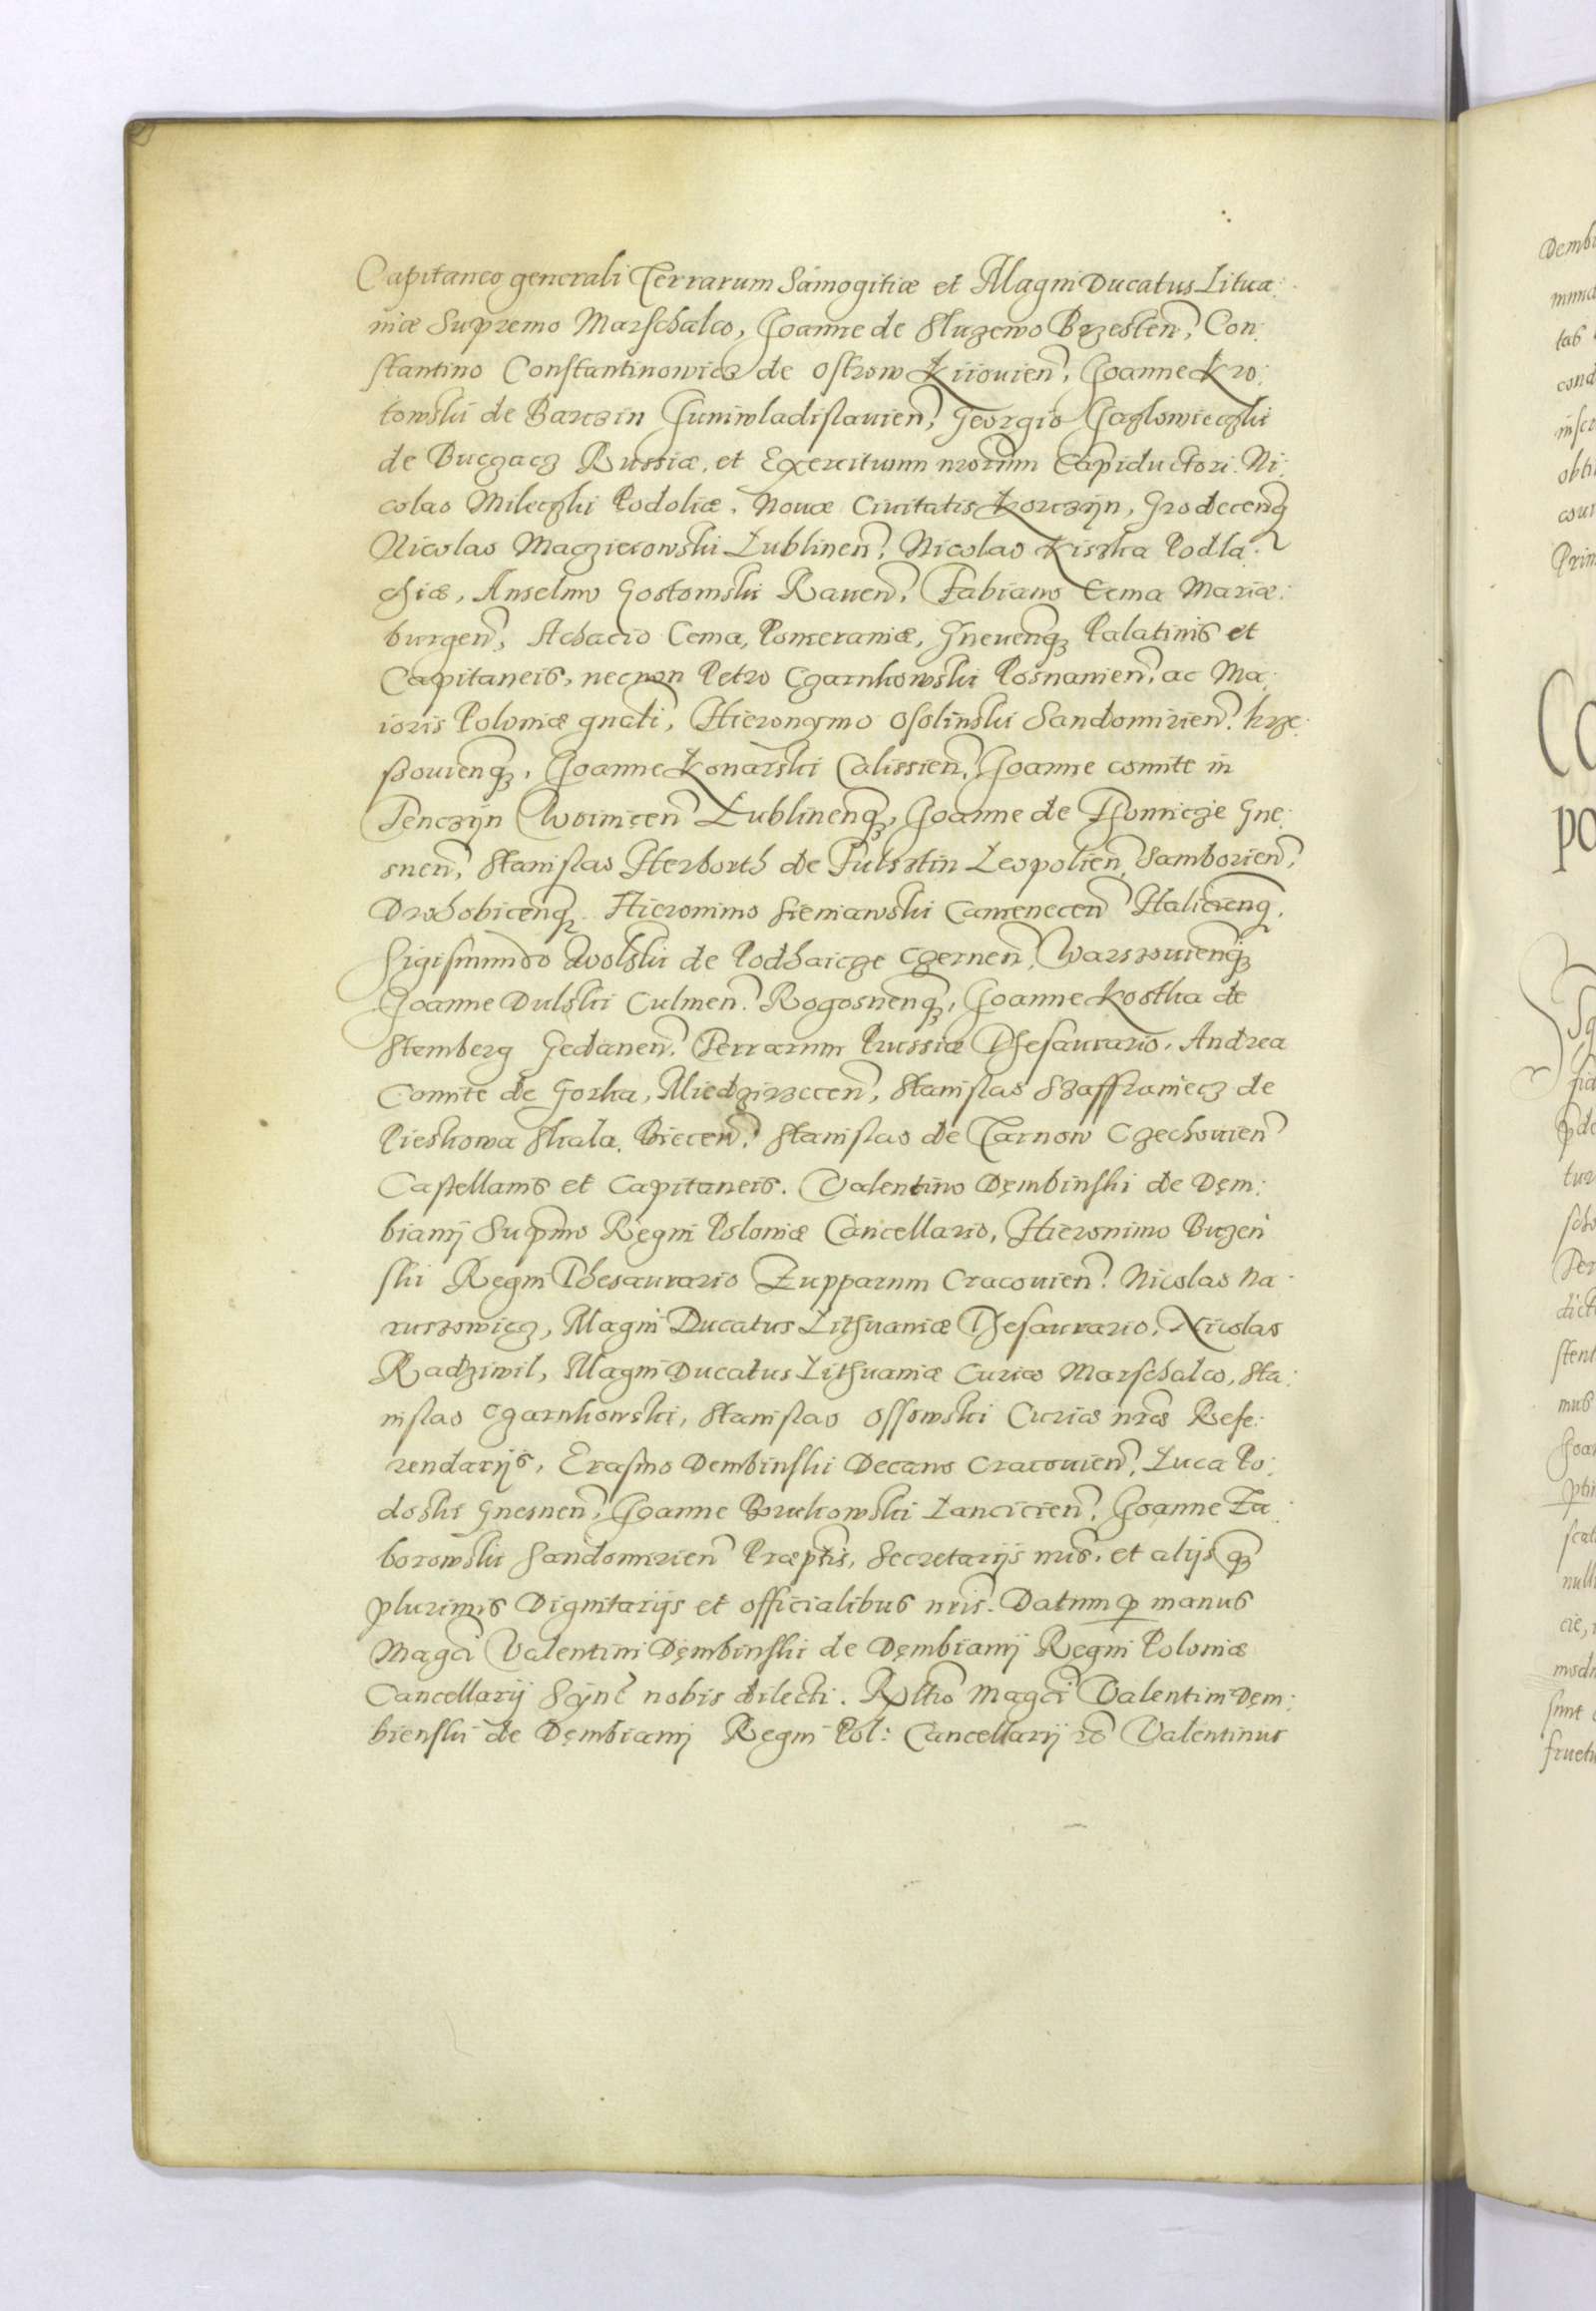 Capitaneo generali Terrarum Samogitiæ et Magni Ducatus Litua:
niæ Supremo Marschalco, Joanne de Sluzewo Brzesteñ, Con:
stantino Constantinowicz de Ostrow Kijouieñ, Joanne Kro:
towski de Barczin Juniwladislauieñ, Georgio Jazlowieczki
de Buczacz Russiæ, et Exercituum nrorum Capiductori. Ni:
colao Mileczki Podoliæ, Nouæ Ciuitatis Korczyn, Grodeceñq
Nicolao Maczieiowski Lublineñ, Nicolao Kiszka Podla:
chiæ, Anselmo Gostomski Raueñ, Fabiano Cema Mariæ:
burgeñ, Achacio Cema, Pomeraniæ, Gneueñq Palatinis et
Capitaneis, necnon Petro Czarnkowski Posnanieñ, ac Ma:
ioris Poloniæ gnali, Hieronymo Osolinski Sandomirieñ. krze:
szouieñq, Joanne Konarski Calissieñ, Joanne comite in
Tenczyn Woiniceñ Lublineñq, Joanne de Thomicze Gne:
sneñ, Stanislao Herborth de Fulsztin Leopolieñ, Samborieñ,
Drohobiceñq. Hieronimo Sieniawski Cameneceñ Halicieñq,
Sigismundo Wolski de Podhaicze Czerneñ, Warszouieñq
Joanne Dulski Culmeñ. Rogosneñq, Joanne Kostka de
Stemberg Gedaneñ. Terrarum Prussiæ Thesaurario, Andrea
Comite de Gorka, Miedzirzeceñ, Stanislao Szaffraniecz de
Pieskowa Skala, Bieceñ. Stanislao de Tarnow Czechouieñ
Castellanis et Capitaneis. Valentino Dęmbinski de Dęm:
biany Supmo Regni Poloniæ Cancellario, Hieronimo Buzen
ski Regni Thesaurario Zupparum Cracouieñ. Nicolao Na:
ruszowicz, Magni Ducatus Lithuaniæ Thesaurario, Nicolao
Radziwil, Magni Ducatus Lithuaniæ Curiæ Marschalco, Sta:
nislao Czarnkowski, Stanislao Ossowski Curiæ nræ Refe:
rendarijs, Erasmo Dembinski Decano Cracouieñ, Luca Po:
doski Gnesneñ, Joanne Borukowski Lancicieñ, Joanne Za:
borowski Sandomirieñ Præptis, Secretarijs nris, et alijs q
plurimis Dignitarijs et officialibus nris. Datum p manus
Magci Valentini Dęmbinski de Dęmbiany Regni Poloniæ
Cancellarij Syncͤ nobis dilecti. Rltio Magci Valentini Dęm:
bienski de Dęmbiany Regni Pol: Cancellarij rō Valentinus